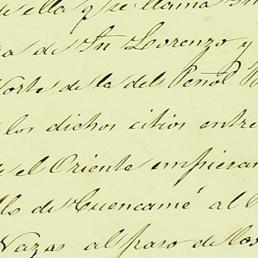 de ella q se llama Sn
a de Sn Lorenzo y
Norte de la del Peñol
los dichos citios entre
el Oriente empiesan
de Cuencamé al
Nazas al paso de los